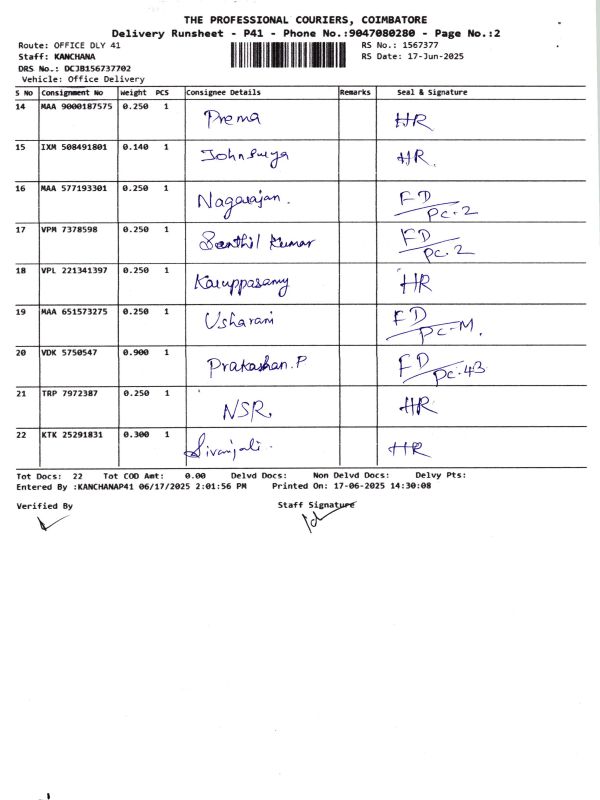 THE PROFESSIONAL COURIERS, COIMBATORE
Delivery Runsheet - P41 - Phone No.:9047080280 - Page No.:2
Route: OFFICE DLY 41 RS No.: 1567377
Staff: KANCHANA RS Date: 17-Jun-2025
DRS No.: DCJB156737702
Vehicle: Office Delivery
S No Consignment No Weight PCS Consignee Details Remarks Seal & Signature
14 MAA 9000187575 0.250 1 Prema HR
15 IXM 508491801 0.140 1 Johnsurya HR.
16 MAA 577193301 0.250 1 Nagarajan. FD PC-2
17 VPM 7378598 0.250 1 Senthil Kumar FD PC.2
18 VPL 221341397 0.250 1 Karuppasamy HR
19 MAA 651573275 0.250 1 Usharani FD PC-M.
20 VDK 5750547 0.900 1 Prakashan.P FD PC.43
21 TRP 7972387 0.250 1 NSR. HR
22 KTK 25291831 0.300 1 Sivanjali. HR
Tot Docs: 22 Tot COD Amt: 0.00 Delvd Docs: Non Delvd Docs: Delvy Pts:
Entered By :KANCHANAP41 06/17/2025 2:01:56 PM Printed On: 17-06-2025 14:30:08
Verified By Staff Signature